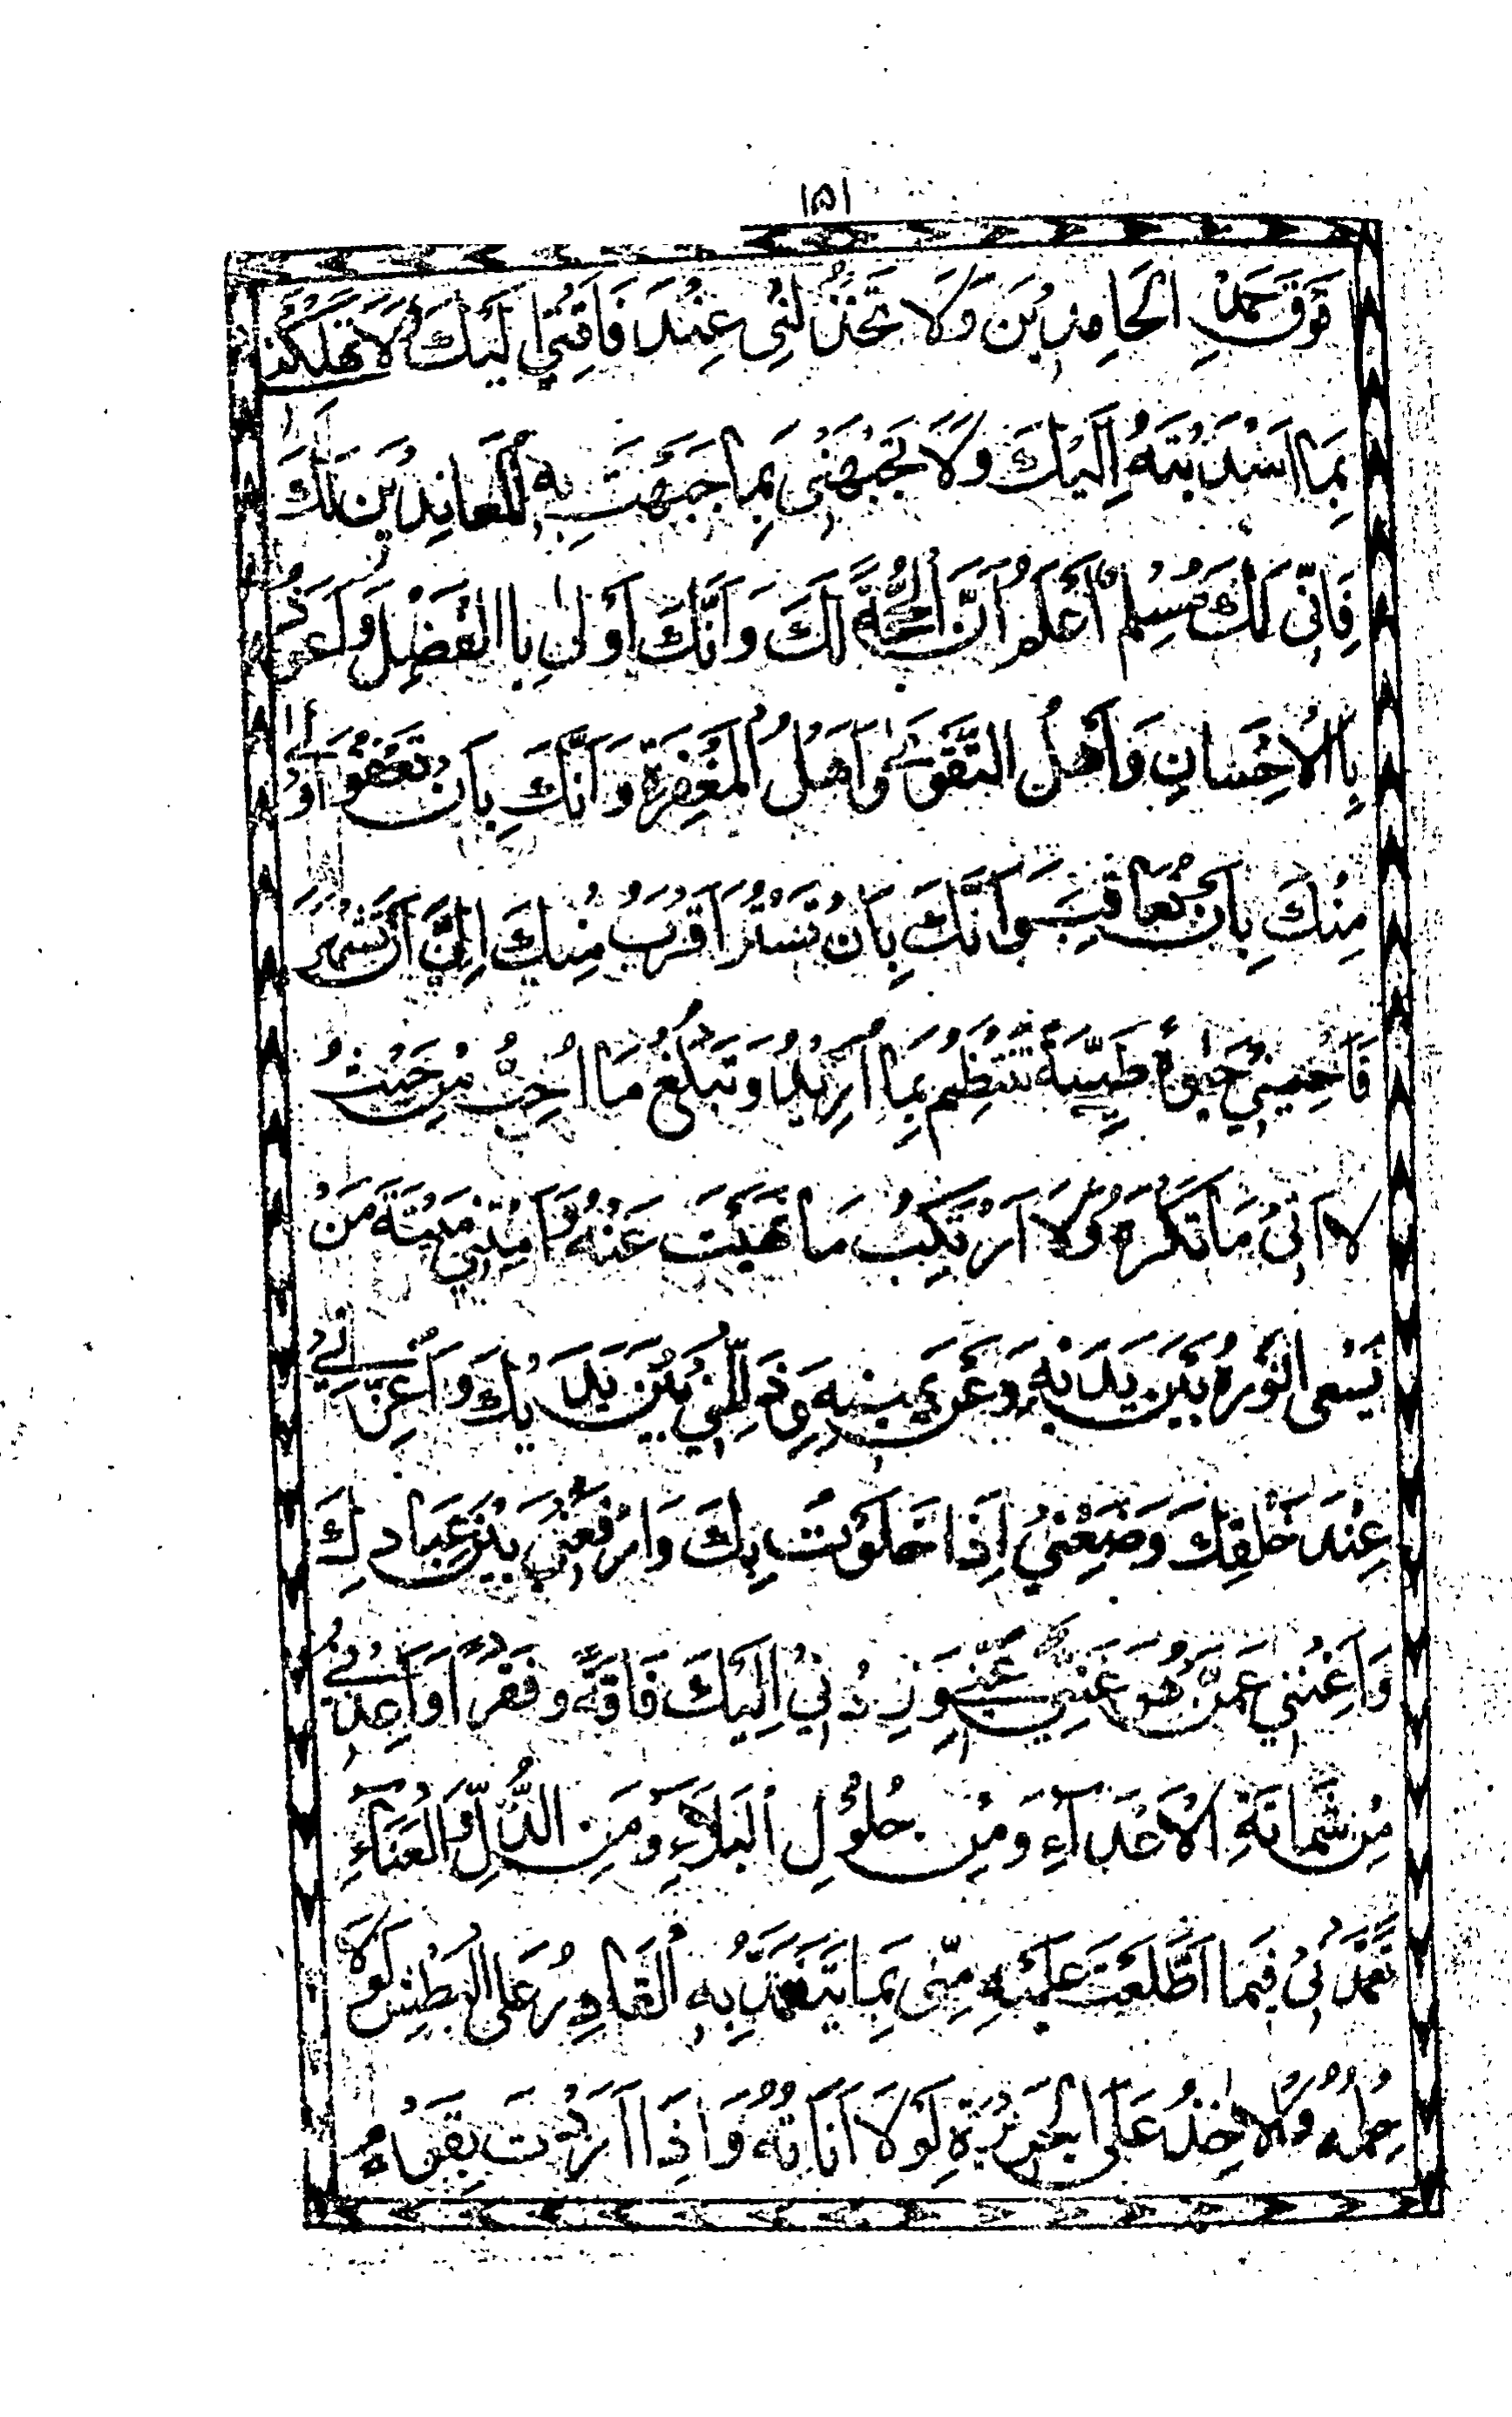 ١٥١
فَوْقَ حَمْدِ الْحَامِدِيْنَ وَلَا تَخْذُلْنِى عِنْدَ فَاقَتِىْ اِلَيْكَ وَلَا تُهْلِكْنِىْ
بِمَا اَسْدَيْتَهُ اِلَيْكَ وَلَا تَجْبَهْنِى بِمَا جَبَهْتَ بِهِ الْمُعَانِدِيْنَ لَكَ
فَاِنِّى لَكَ مُسْلِمٌ اَعْلَمُ اَنَّ الْحُجَّةَ لَكَ وَاَنَّكَ اَوْلٰى بِاالْفَضْلِ وَاَعْوَدُ
بِاالْاِحْسَانِ وَاَهْلُ التَّقْوٰى وَاَهْلُ الْمَغْفِرَةِ وَاَنَّكَ بِاَنْ تَعْفُوَ اَوْلٰى
مِنْكَ بِاَنْ تُعَاقِبَ وَاَنَّكَ بِاَنْ تَسْتُرَ اَقْرَبُ مِنْكَ اِلٰى اَنْ تَشْهَرَ
فَاَحْيِنِىْ حَيٰوةً طَيِّبَةً تَنْتَظِمُ بِمَا اُرِيْدُ وَتَبْلُغُ مَا اُحِبُّ مِنْ حَيْثُ
لَا اٰتِىْ مَا تَكْرَهُ وَلَا اَرْتَكِبُ مَا نَهَيْتَ عَنْهُ وَاَمِتْنِىْ مِيْتَةَ مَنْ
يَسْعٰى نُوْرُهُ بَيْنَ يَدَيْهِ وَعَنْ يَمِيْنِهِ وَذَلِّلْنِىْ بَيْنَ يَدَيْكَ وَاَعِزَّنِىْ
عِنْدَ خَلْقِكَ وَضَعْنِىْ اِذَا خَلَوْتُ بِكَ وَارْفَعْنِىْ بَيْنَ عِبَادِكَ
وَاَغْنِنِىْ عَمَّنْ هُوَ غَنِىٌّ عَنِّىْ وَزِدْنِىْ اِلَيْكَ فَاقَةً وَفَقْرًا وَاَعِذْنِىْ
مِنْ شَمَاتَةِ الْاَعْدَآءِ وَمِنْ حُلُوْلِ الْبَلَآءِ وَمِنَ الذُّلِّ وَالْعَنَآءِ
تَغَمَّدْنِىْ فِيْمَا اطَّلَعْتَ عَلَيْهِ مِنِّى بِمَا يَتَغَمَّدُ بِهِ الْقَادِرُ عَلَى الْبَطْشِ لَوْلَا
حِلْمُهُ وَالْاٰخِذُ عَلَى الْجَرِيْرَةِ لَوْلَا اَنَاتُهُ وَاِذَا اَرَدْتَ بِقَوْمٍ